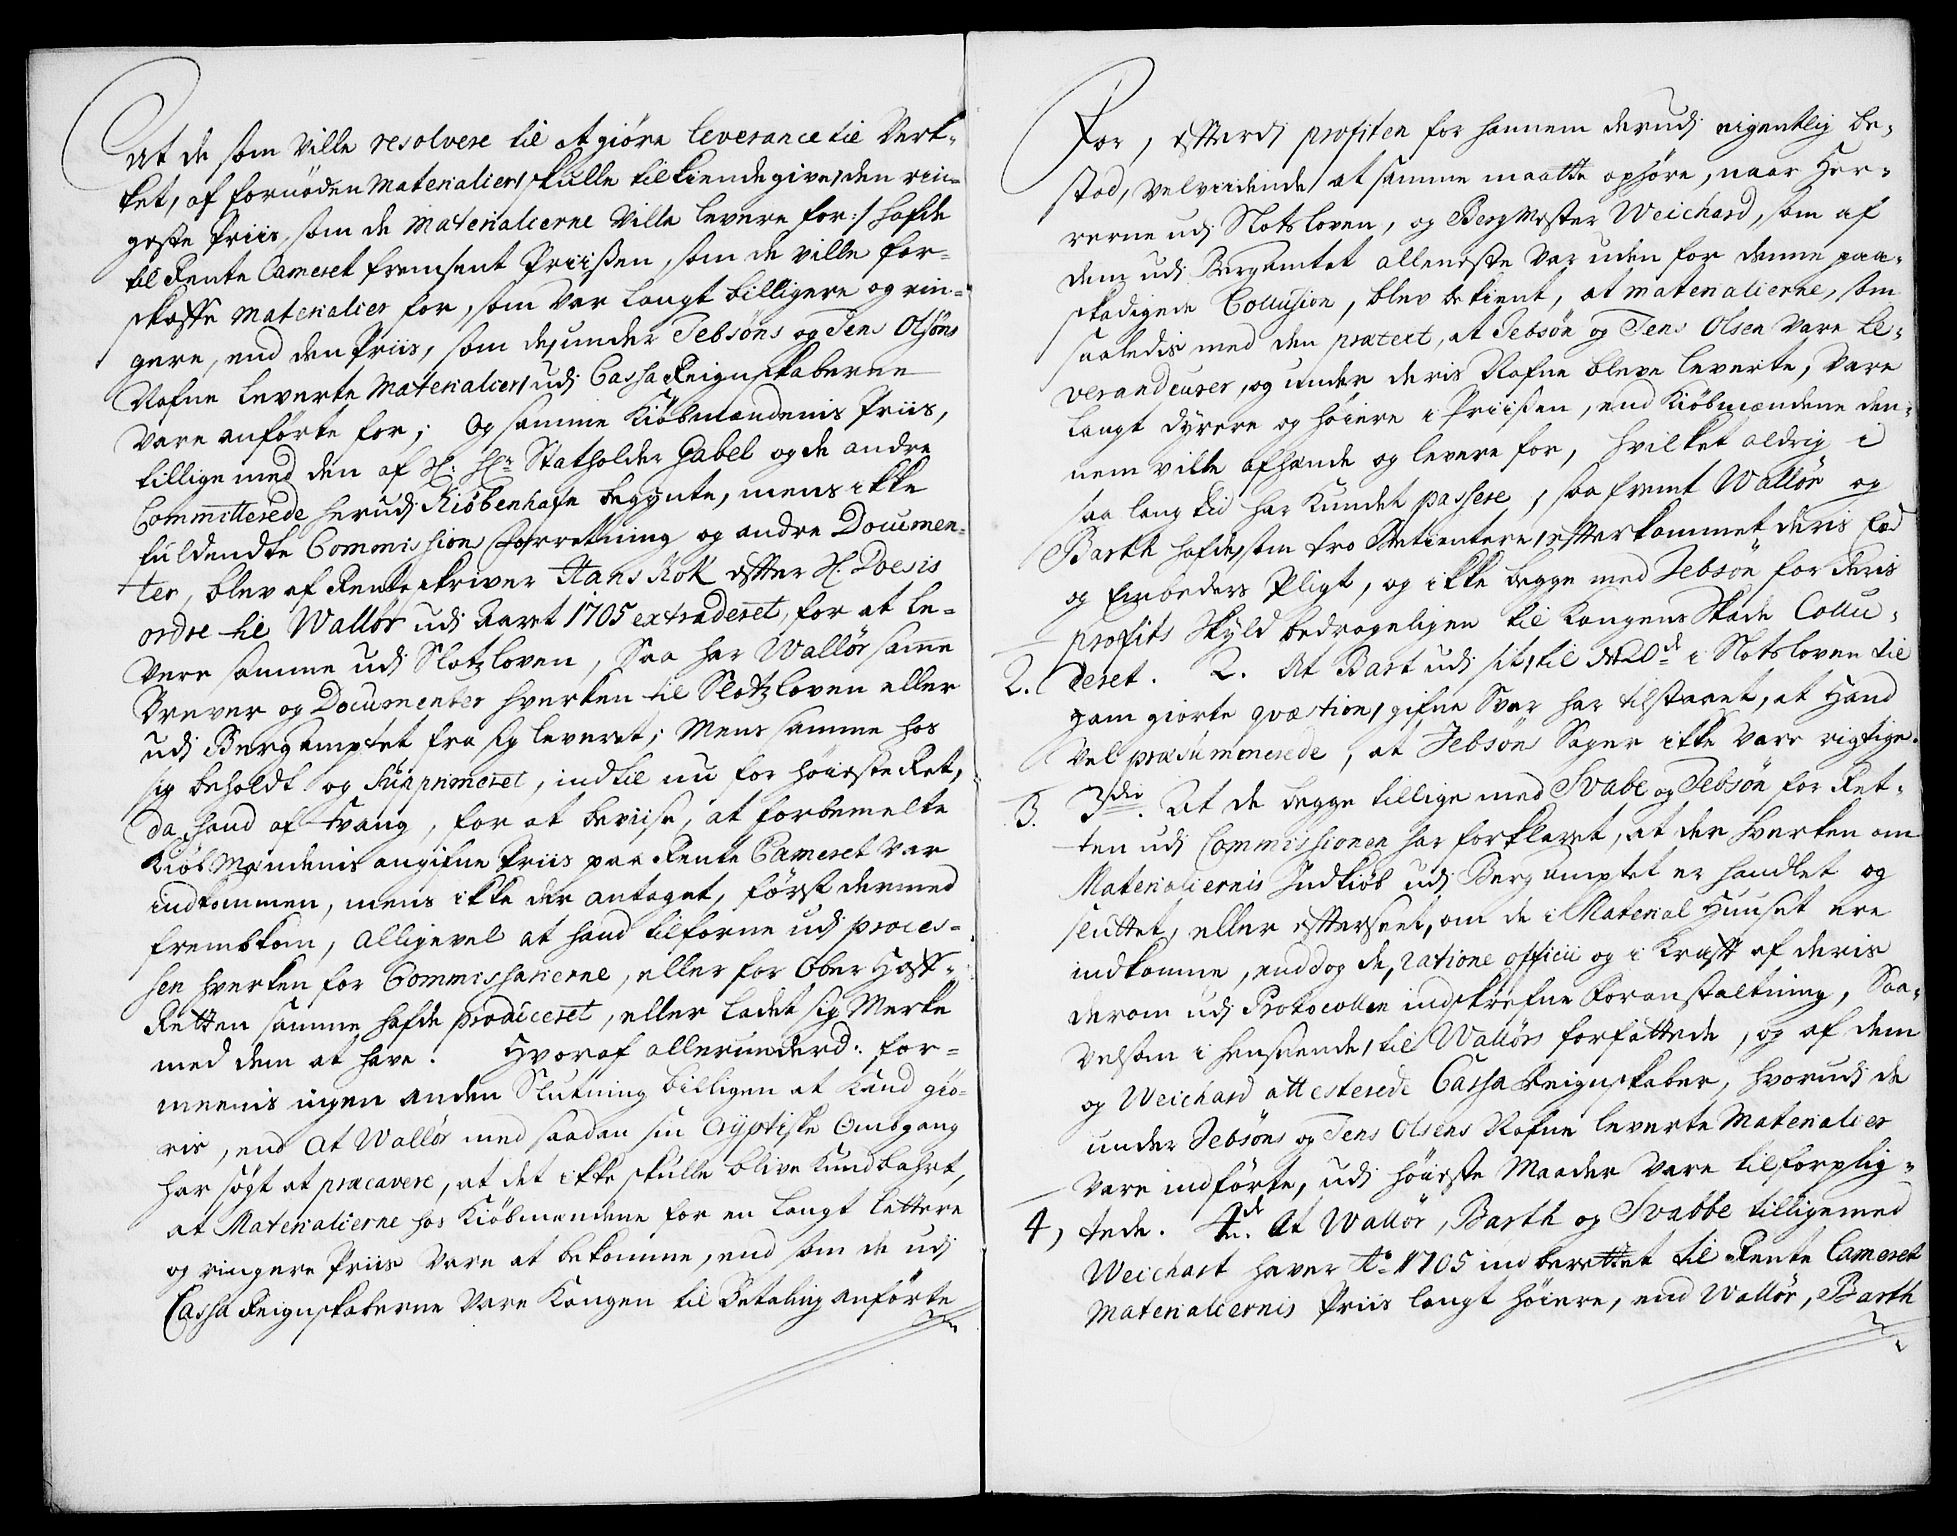 At de som ville resolvere til at giöre leverance til Verk-
ket, af fornöden Materialier, skulle tilkiendegive, den rin-
geste Priis, som de Materialierne ville levere for:/ hafde
til Rente Cameret fremsent Priissen, som de ville for-
skaffe Materialier for, som var langt billigere og rin-
gere, end den Priis, som de, under Jebsöns og Jens Olsöns
Nafne leverte Materialier, udi Cassa Reignskaberne
vare anförte for; Og samme Kiöbmændenis Priis,
tillige med den af H: Hr Statholder Gabel og de andre
Committerede herudj Kiöbenhafn begynte, mens ikke
fuldendte Commissions Forretning og andre Documen-
ter, blev af Renteskriver Hans Kok efter H. Doesis
ordre til Wallör udj Aaret 1705 extraderet, for at le-
vere samme udj Slotzloven, Saa har Wallör samme
Brever og Documenter hverken til Slotzloven eller
udj Bergamptet fra sig leveret; Mens samme hos
sig beholdt og Supprimeret, indtil nu for höieste Ret,
da hand af tvang, for at beviise, at forbemelte
Kiöbmændenis angifne Priis paa Rente Cameret var
indkommen, mens ikke der antaget, först dermed
frembkom, alligevel at hand tilforne udj proces-
sen hverken for Commissarierne, eller for Ober Hoff-
Retten samme hafde produceret, eller ladet sig Merke
med dem at have. Hvoraf allerunderd: for-
meenis ingen anden Slutning billigen at kand giö-
ris, end at Wallör med saadan sin Ægyptiske Ombgang
har sögt at præcavere, at det ikke skulle blive kundbahrt,
at Materialierne hos Kiöbmændene for en langt lettere
og ringere Priis vare at bekomme, end som de udj
Cassa Reignskaberne vare Kongen til Betaling anförte
For, efterdj profiten for hannem derudj eigentlig be-
stod, velvidende at samme maatte ophöre, naar Her-
rerne udj Slotsloven, og BergMester Weichard, som af
dem udj Bergamtet alleneste var uden for denne paa-
skadigede Collusion, blev bekient, at Materialierne, som
saaledis med den prætext, at Jebsön og Jens Olsen vare le-
verandeurer, og under deris Nafne bleve leverte, vare
langt dyrere og höiere i Priissen, end Kiöbmændene den-
nem ville afhænde og levere for, hvilket aldrig i
saa lang tid har kundet passere, saa fremt Wallör og
Barth hafde, som tro Betientere, efterkommet deris Eed
og Embeders Pligt, og ikke begge med Jebsön for deris
profits Skyld bedrageligen til Kongens Skade Collu-
2. deret. 2. At Bart udj sit, til det 20de i Slotsloven til
ham giorte qvæstion, gifne Svar har tilstaaet, at Hand
vel præsumerede, at Jebsöns Sager ikke vare rigtige.
3. 3die. At de begge tillige med Svabe og Jebsön for Ret-
ten udj Commissionen har forklaret, at der hverken om
Materialiernis Indkiöb udj Bergamptet er handlet og
sluttet, eller efterseet, om de i Material Huuset ere
indkomne, enddog de, ratione officii og i Kraft af deris
derom udj Protocollen indskrefne Foranstaltning, Saa-
velsom i henseende, til Wallörs forfattede, og af dem
og Weichard attesterede Cassa Reignskaber, hvorudj de
under Jebsöns og Jens Olsens Nafne leverte Materialier
vare indförte, udj höieste Maader vare tilforplig-
4, tede. 4de. At Wallör, Barth og Svabbe tilligemed
Weichart haver Ao 1705 indberettet til Rente Cameret
Materialiernis Priis langt höiere, end Wallör, Barth